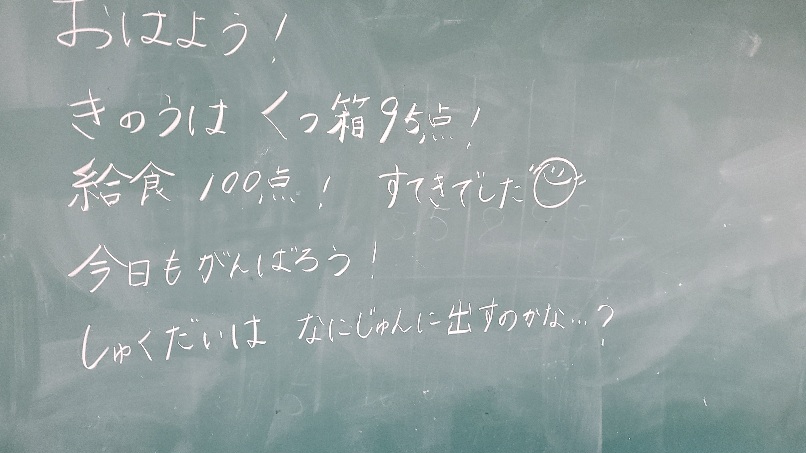 おはよう!
きのうは くつ箱95点!
給食 100点! すてきでした
今日もがんばろう!
しゅくだいは なにじゅんに出すのかな…?